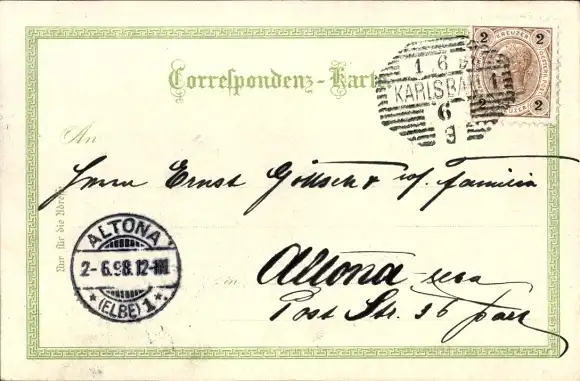 Correspondenz-Karte
2 KREUZER 2
1 6
KARLSBAD 1
6
9
2 2
An
Herrn Ernst Göttsch & w/. Familia
Nur für die Adresse
ALTONA
2-6.98.12-1N
* (ELBE) 1 *
in
Altona
Post Str. 36 part